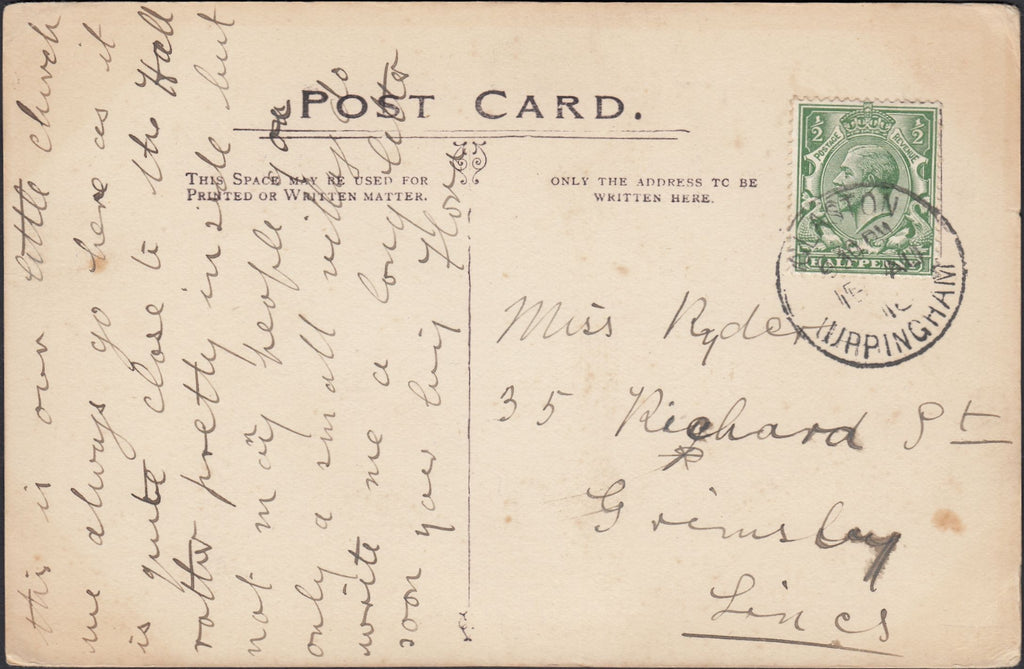 POST CARD.
THIS SPACE MAY BE USED FOR
PRINTED OR WRITTEN MATTER.
ONLY THE ADDRESS TO BE
WRITTEN HERE.
this is our little church
we always go here as it
is quite close to the Hall
rather pretty inside but
not many people go as
only a small village do
write me a long letter
soon your luig Flora
½ ½
POSTAGE REVENUE
HALFPENNY
UPPINGHAM
Miss Ryder
35 Richard St
Grimsby
Lincs